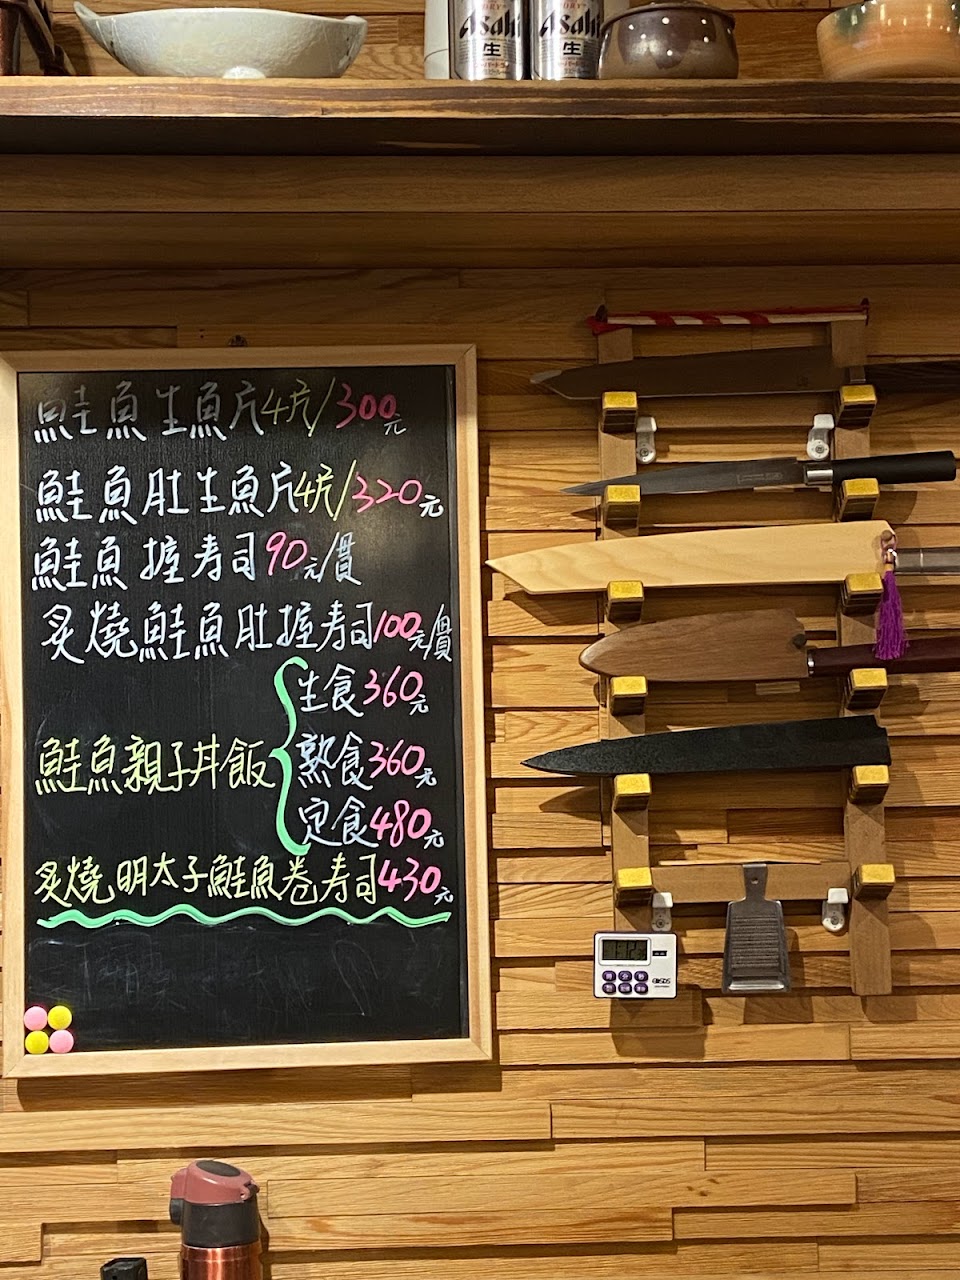 Asahi
生
Asahi
生
鮭魚生魚片4片/300元
鮭魚肚生魚片4片/320元
鮭魚握寿司90元/貫
炙燒鮭魚肚握寿司100元/貫
生食360元
鮭魚親子丼飯
熟食360元
定食480元
炙燒明太子鮭魚卷寿司430元